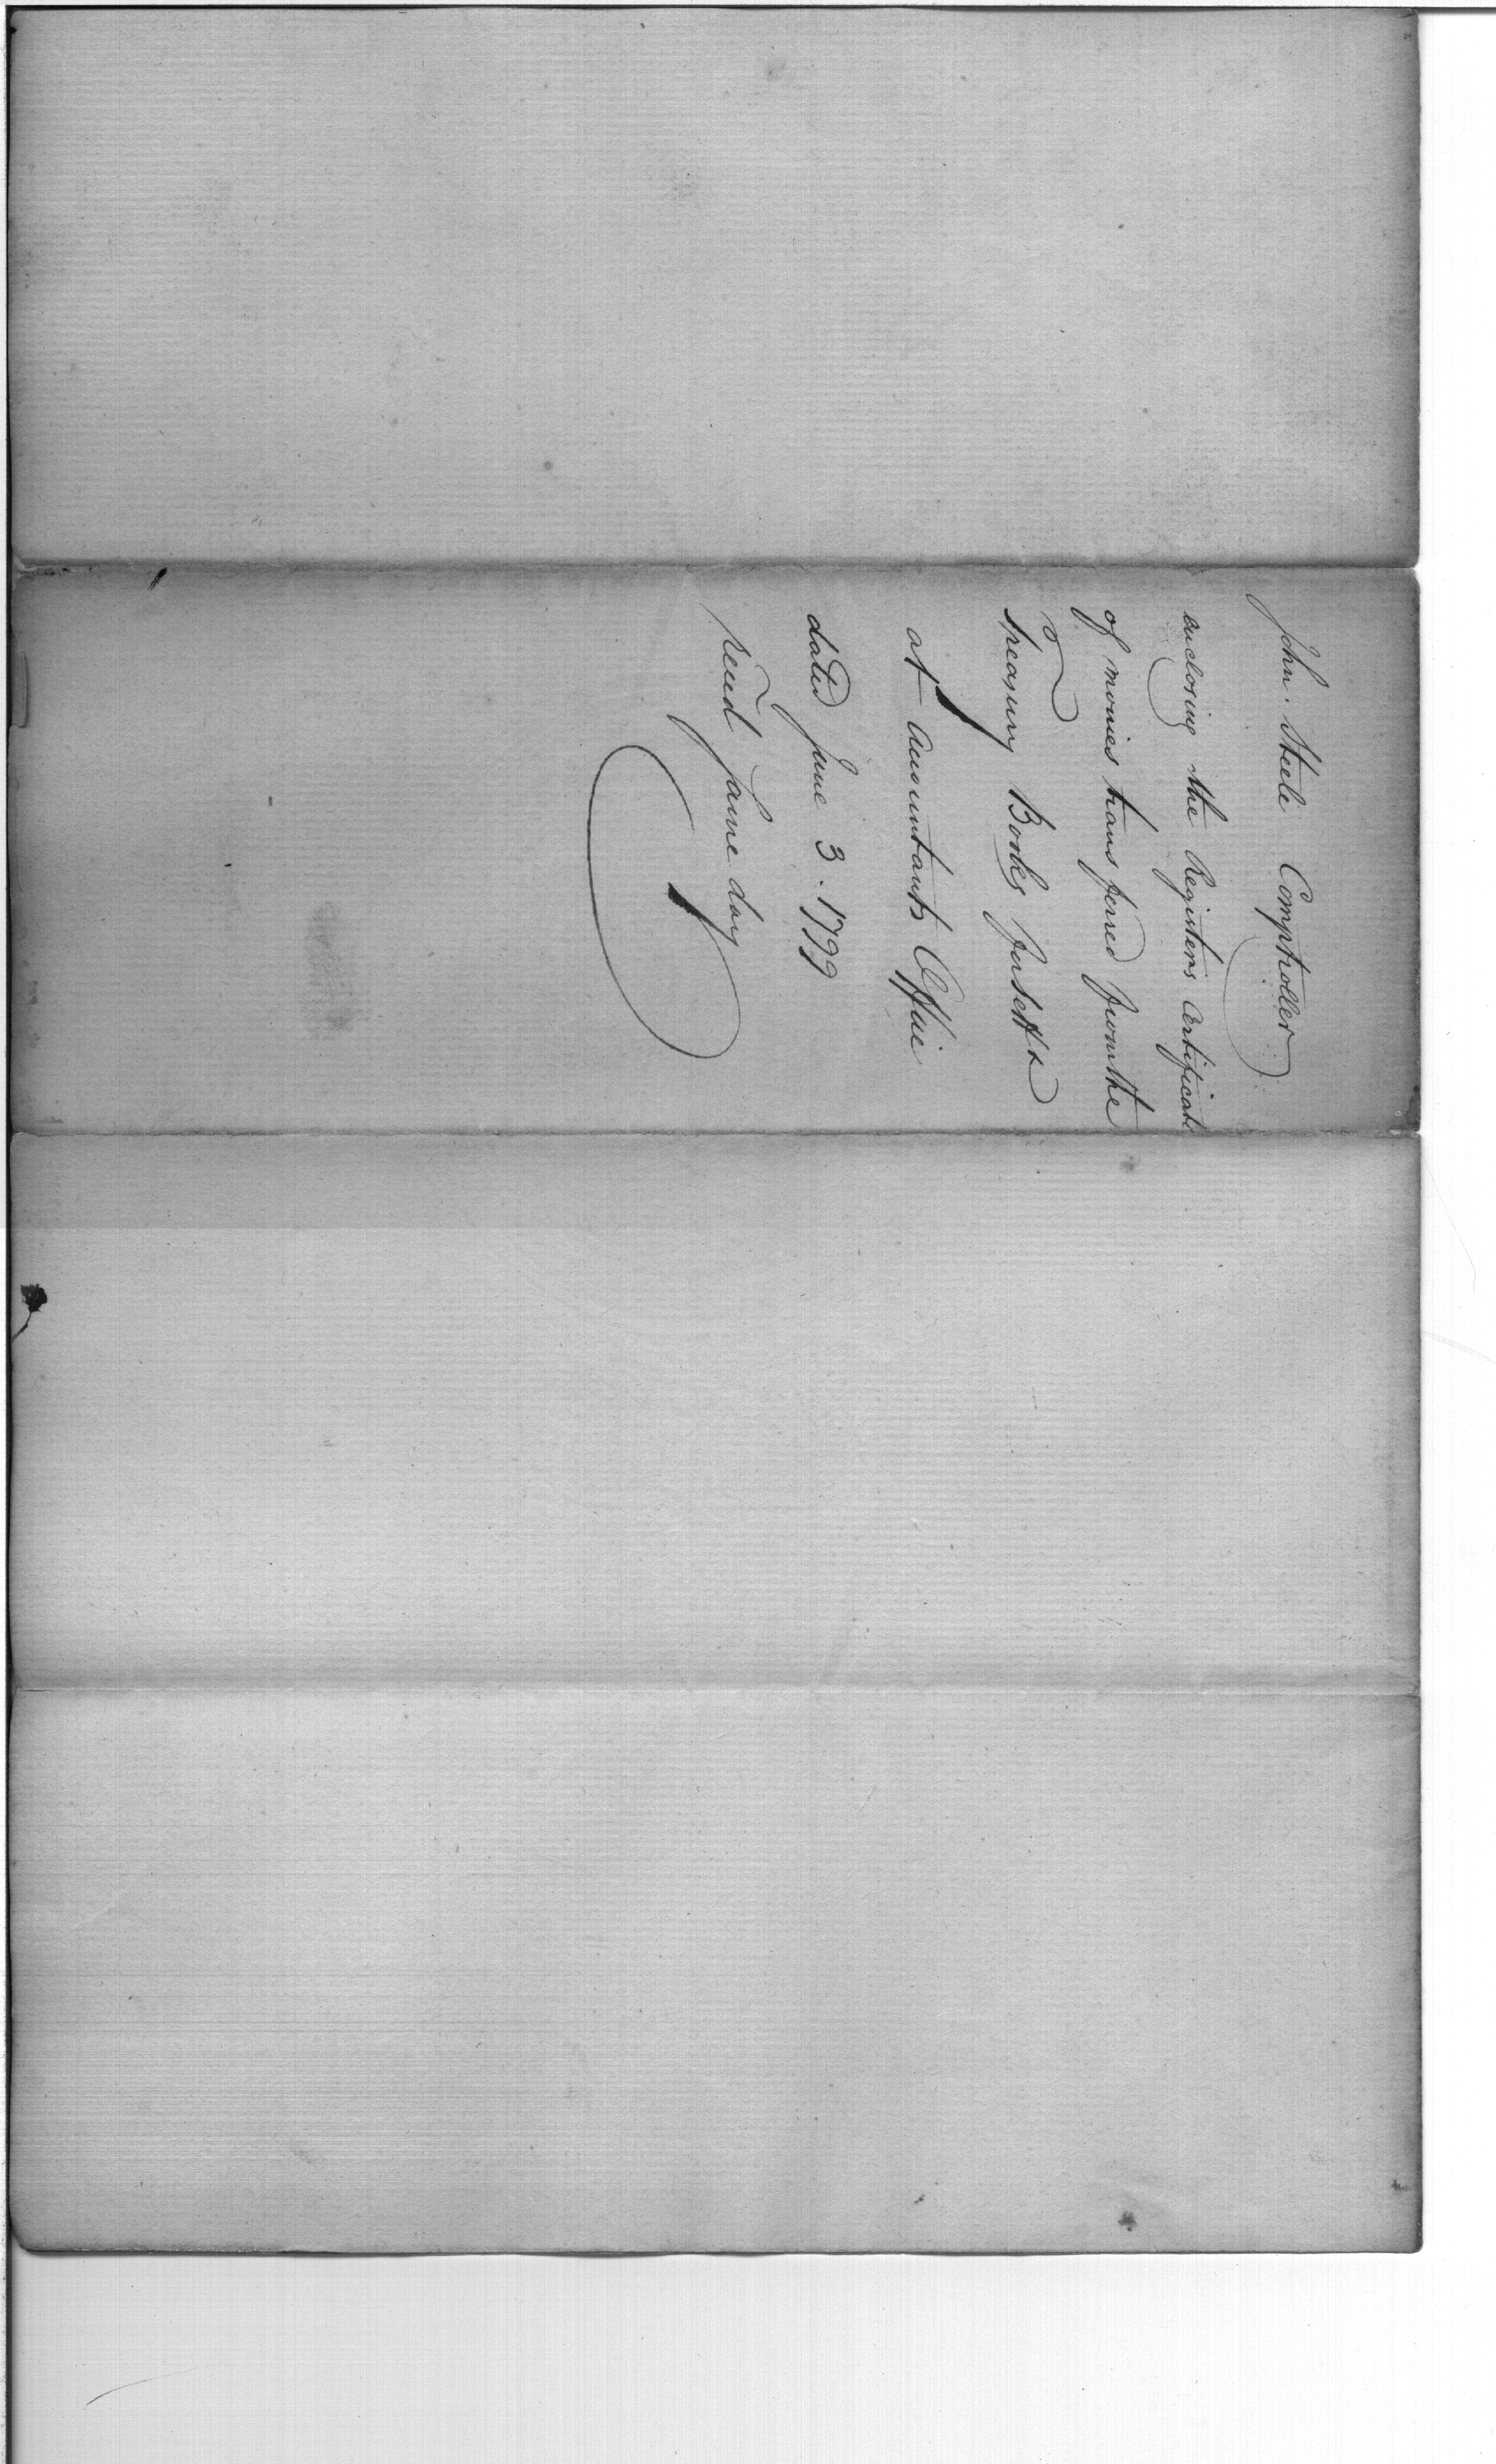 John Steele Comptroller
enclosing the Registers Certificate
of monies transferred from the
Treasury Books for settt
at Accountants Office
dated June 3. 1799
recd same day